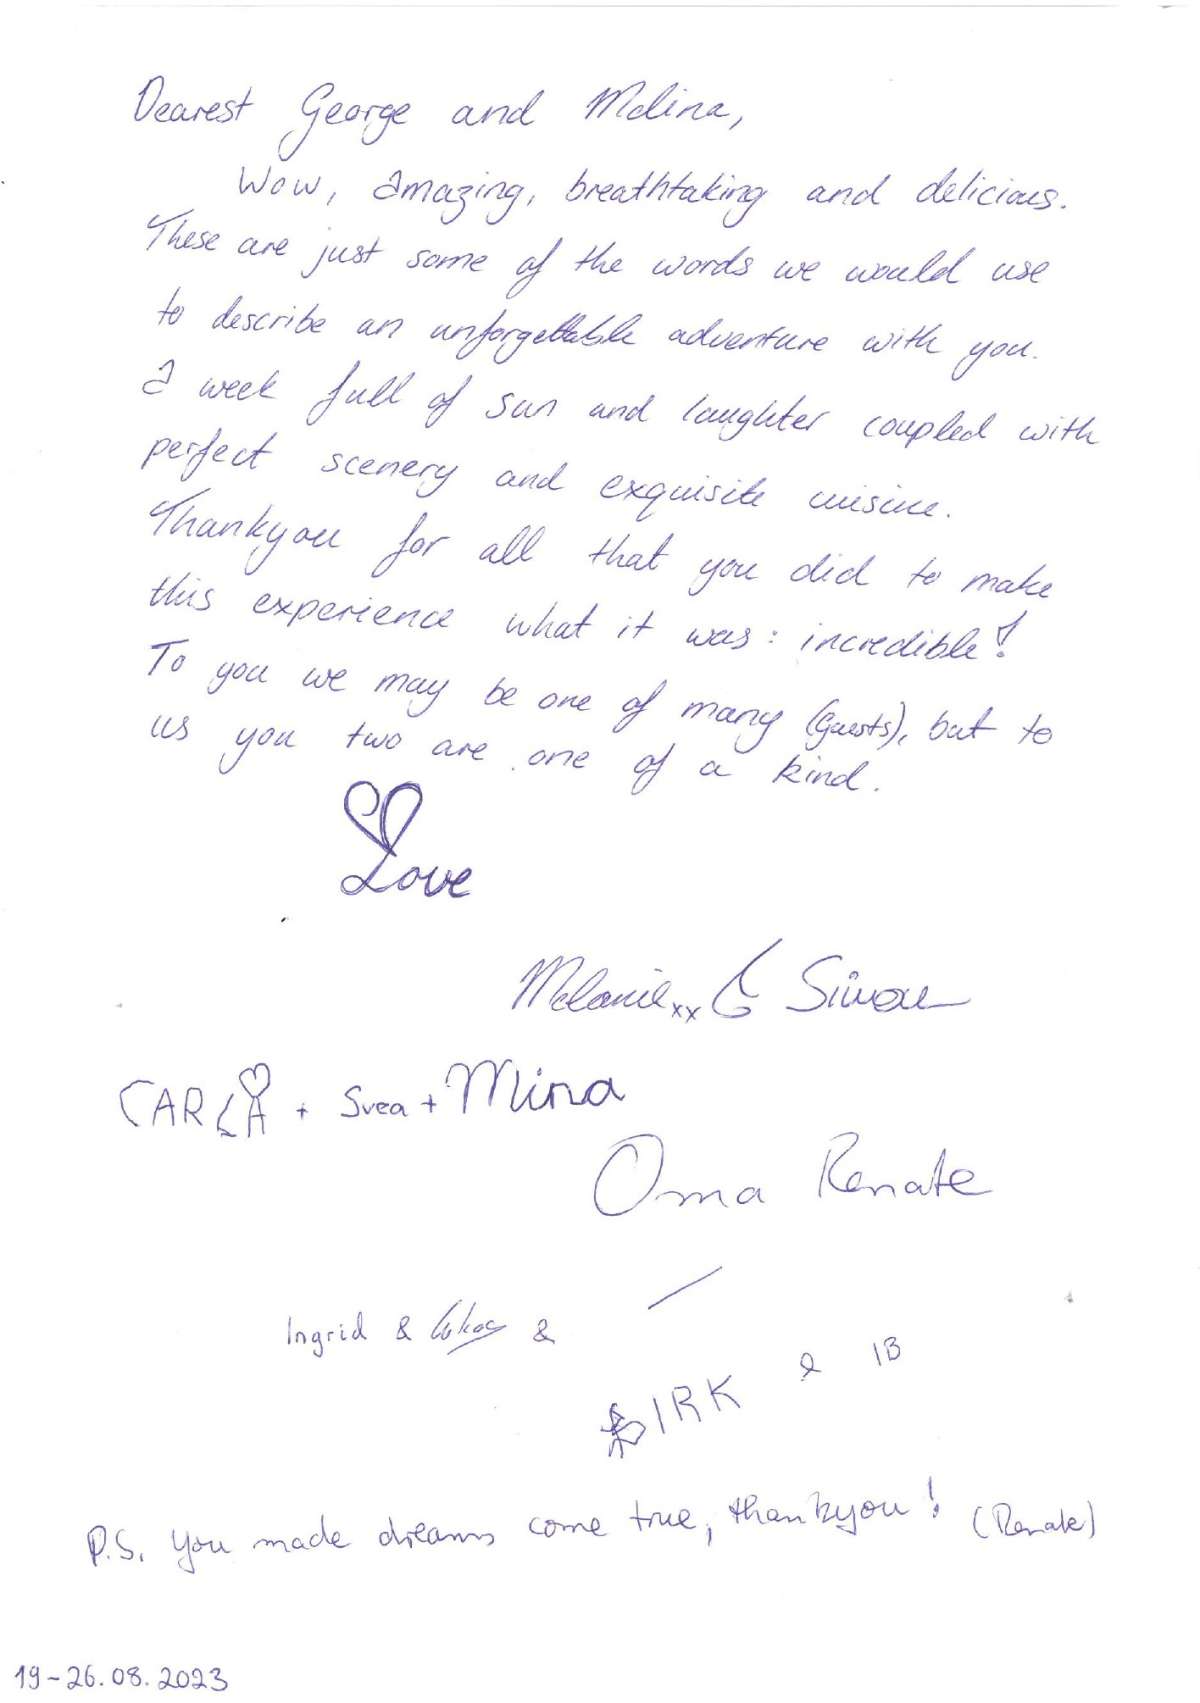 Dearest George and Melina,
Wow, amazing, breathtaking and delicious.
These are just some of the words we would use
to describe an unforgettable adventure with you.
A week full of sun and laughter coupled with
perfect scenery and exquisite cuisine.
Thankyou for all that you did to make
this experience what it was: incredible!
To you we may be one of many (guests), but to
us you two are one of a kind.
Love
Melanie xx Simon
CARLA + Svea + Mina
Oma Renate
Ingrid & Lukas &
IRK & IB
P.S. You made dreams come true, thankyou! (Renate)
19-26.08.2023